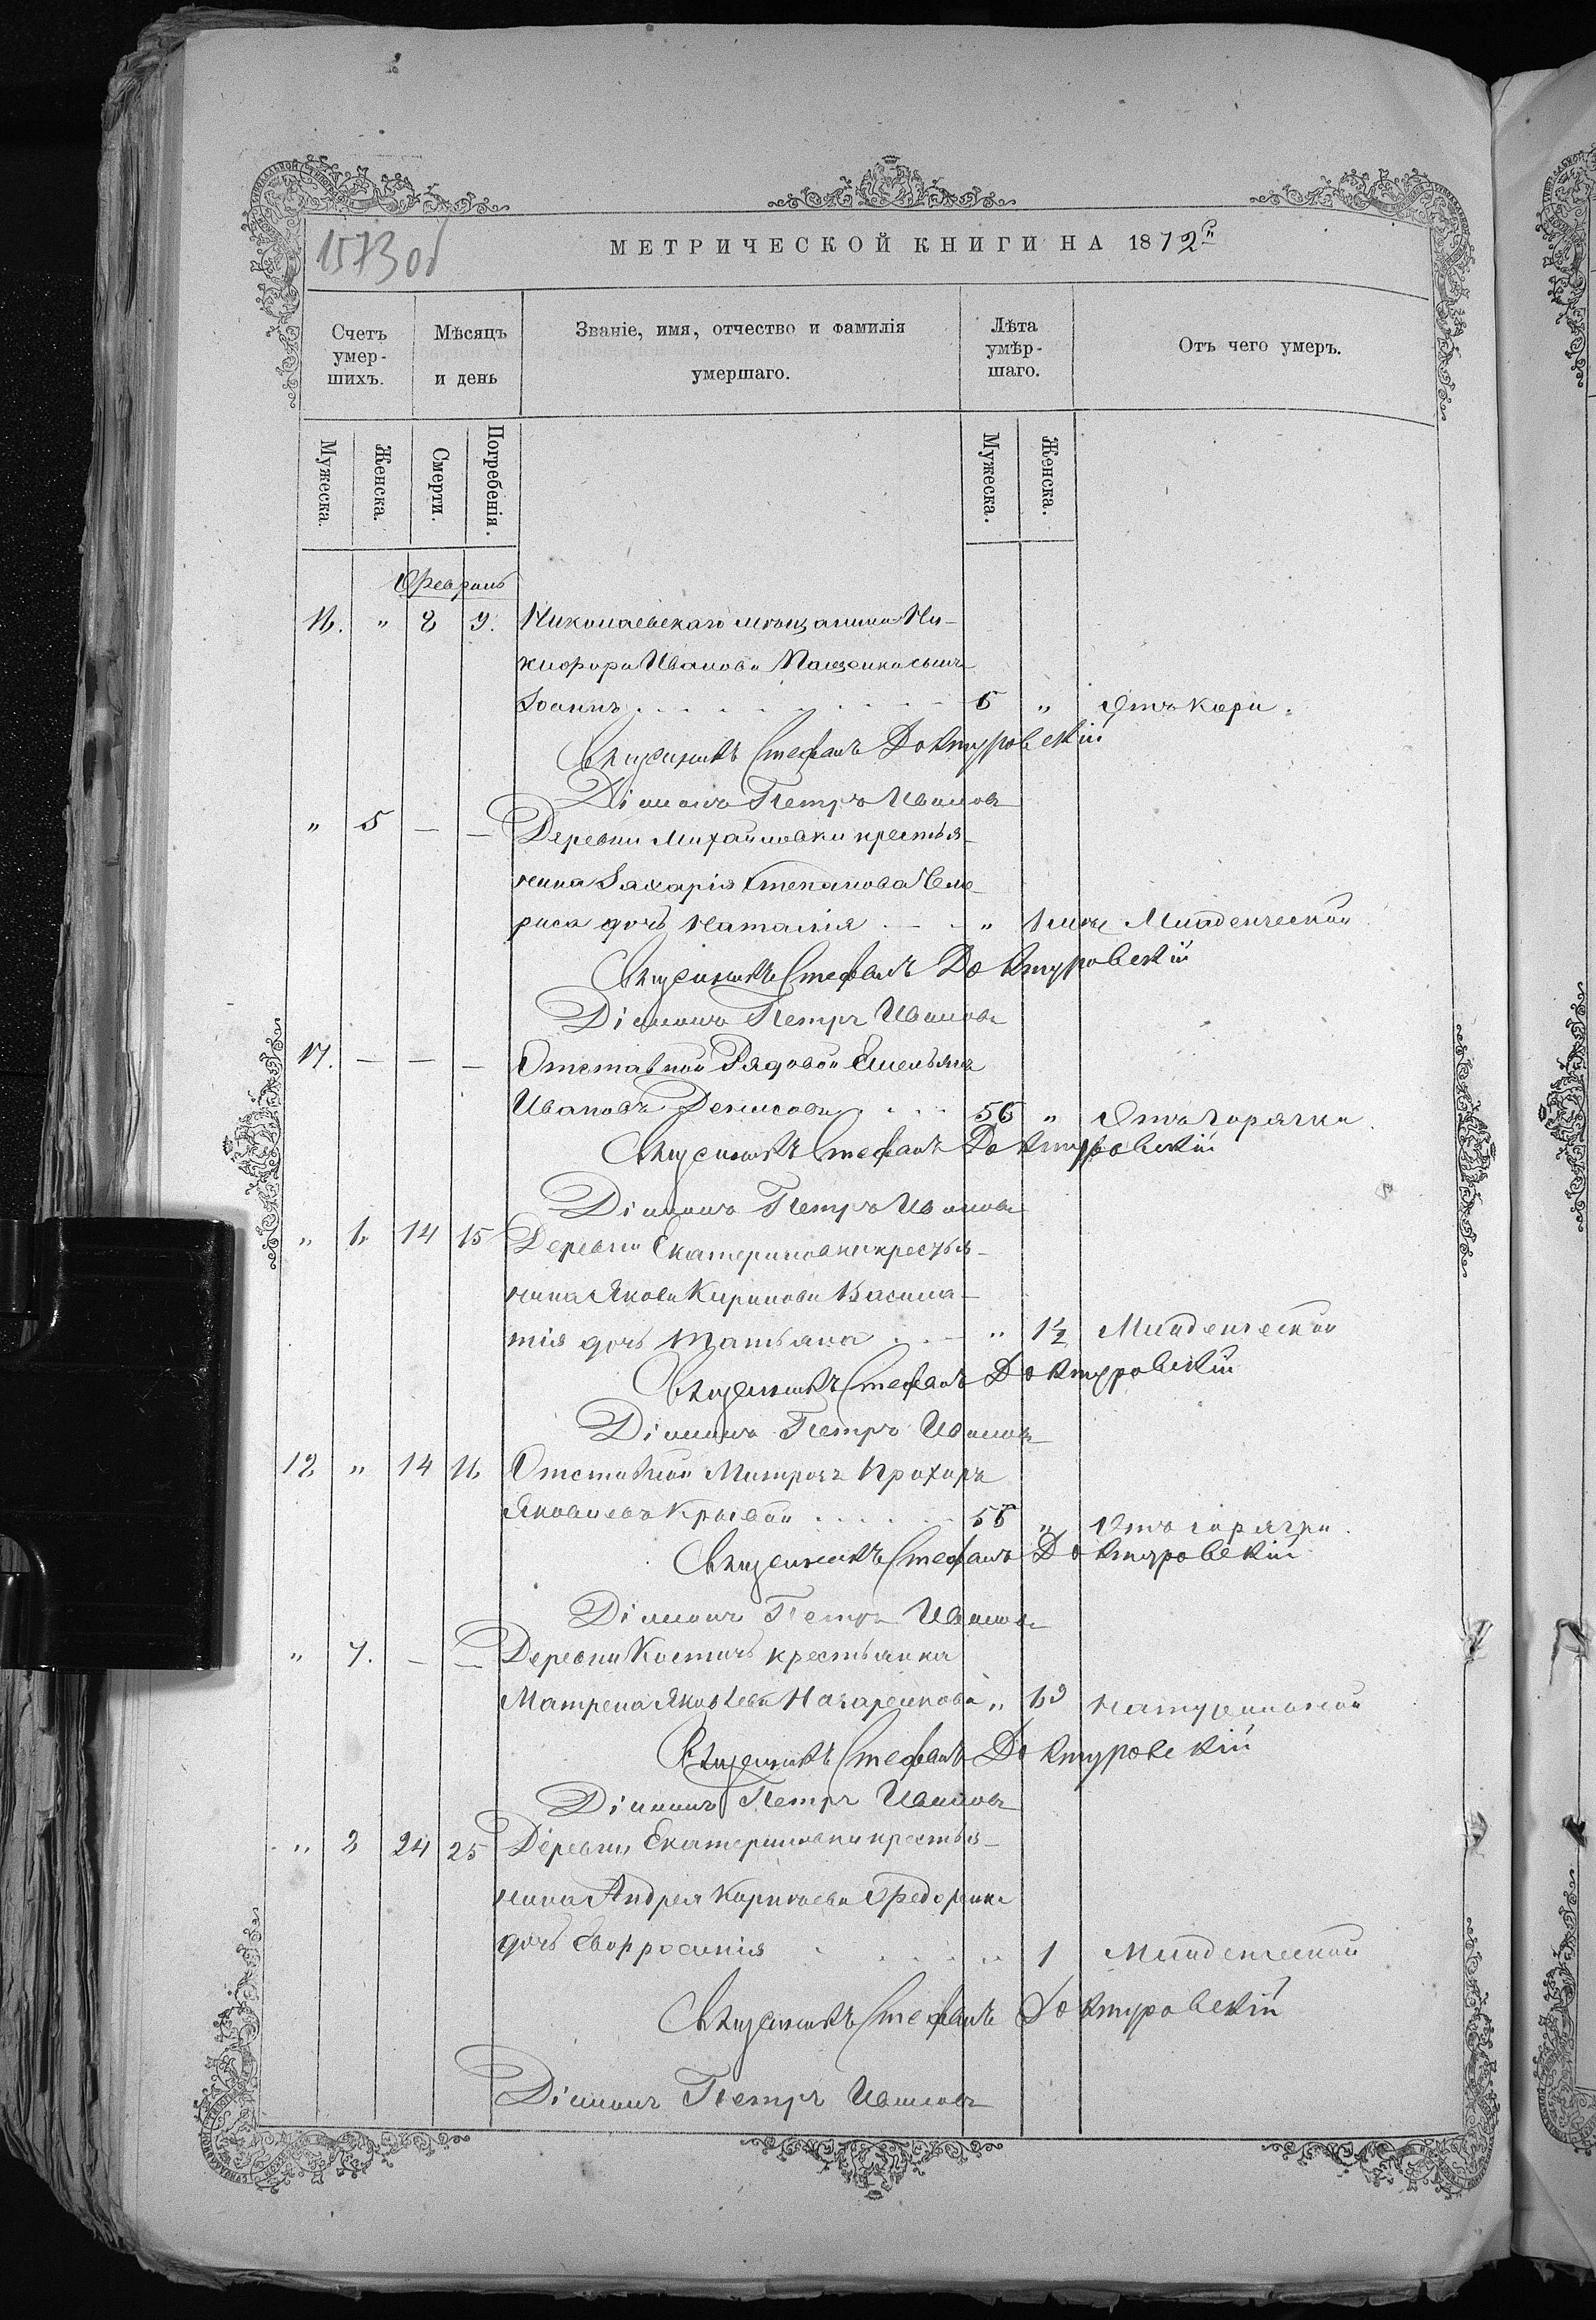 1573 об
МЕТРИЧЕСКОЙ КНИГИ НА 1872 г.
Счетъ умер-шихъ.
Мѣсяцъ и день
Званіе, имя, отчество и фамилія умершаго.
Лѣта умѣр-шаго.
Отъ чего умеръ.
Мужеска. Женска. Смерти. Погребенія. Мужеска. Женска.
Февраль
16. " 8 9. Николаевскаго мѣщанина Ни-
кифора Иванова Пащенка сынъ
Іоаннъ 5 " Отъ кори.
Священникъ Стефанъ Доктуровскій
Діаконъ Петръ Ивановъ
" 5 — — Деревни Михайловки крестья-
нина Захарія Степанова
дочь Наталія " Младенческой
Священникъ Стефанъ Доктуровскій
Діаконъ Петръ Ивановъ
17. — — — Отставной Рядовой Емельянъ
Ивановъ Денисовъ 56 " Отъ горячки.
Священникъ Стефанъ Доктуровскій
Діаконъ Петръ Ивановъ
" 14 15 Деревни Екатериновки крестья-
нина Якова Кирилова
дочь Татьяна " 1½ Младенческой
Священникъ Стефанъ Доктуровскій
Діаконъ Петръ Ивановъ
" 14 16 Отставной Матрозъ Прохоръ
Яковлевъ Кривой " Отъ горячки.
Священникъ Стефанъ Доктуровскій
Діаконъ Петръ Ивановъ
" 7. — — Деревни Костичъ крестьянка
Матрена Яковлева Назаренкова "
Священникъ Стефанъ Доктуровскій
Діаконъ Петръ Ивановъ
" 24 25 Деревни Екатериновки крестья-
нина Андрея Корнѣева Федоренка
дочь Евфросинія " 1 Младенческой
Священникъ Стефанъ Доктуровскій
Діаконъ Петръ Ивановъ